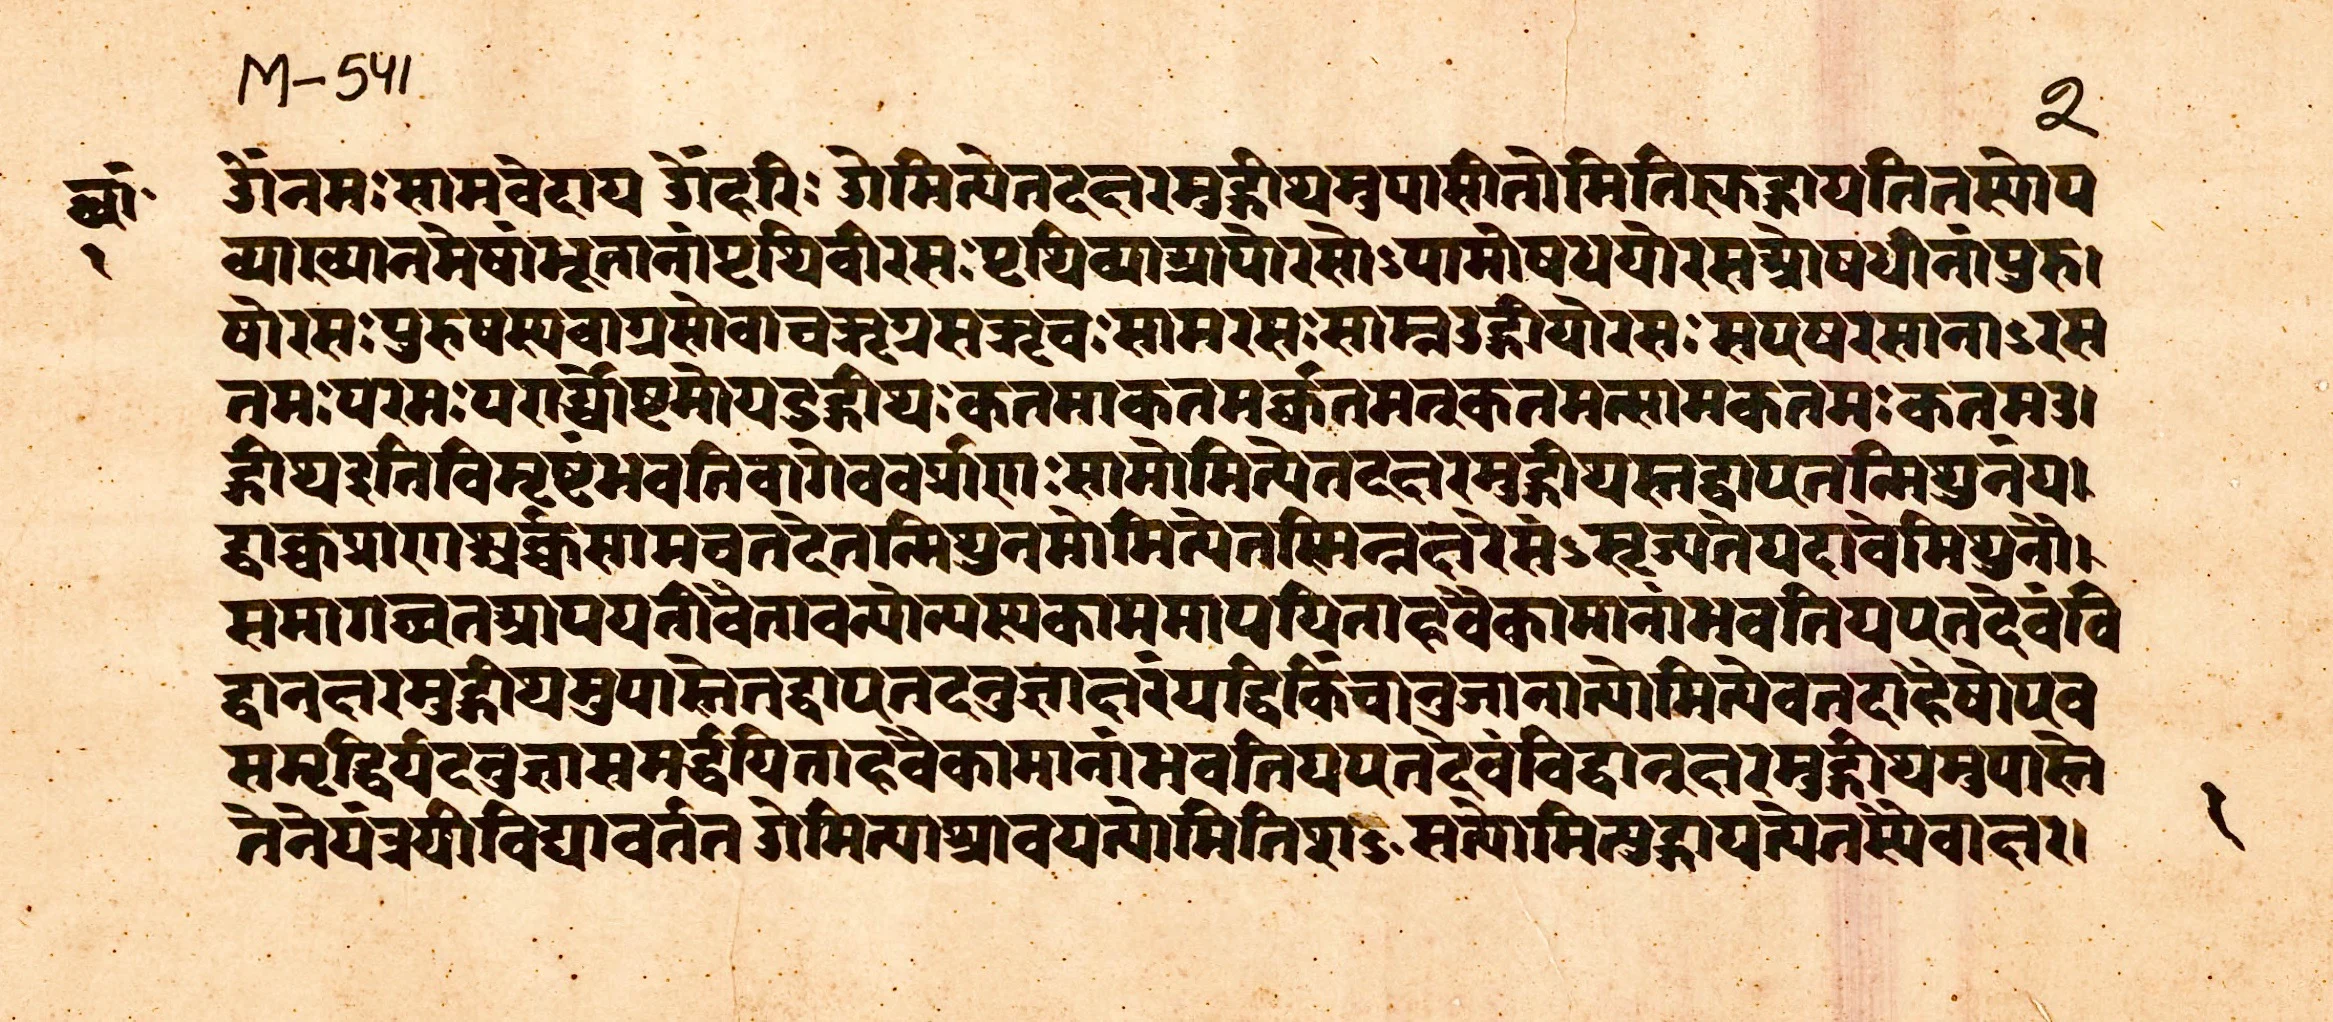 M-541
२
छां॰
१
ॐनमःसामवेदाय ॐहरिः ओमित्येतदक्षरमुद्गीथमुपासीतोमितिह्युद्गायतितस्योप
व्याख्यानमेषांभूतानांपृथिवीरसःपृथिव्याआपोरसोऽपामोषधयोरसओषधीनांपुरु।
षोरसःपुरुषस्यवाग्रसोवाचऋग्रसऋचःसामरसःसाम्नउद्गीथोरसःसएषरसानाऽरस
तमःपरमःपरार्द्ध्योष्टमोयउद्गीथःकतमाकतमर्क्कतमत्कतमत्सामकतमःकतमउ।
द्गीथइतिविमृष्टंभवतिवागेवर्क्प्राणःसामोमित्येतदक्षरमुद्गीथस्तद्वाएतन्मिथुनंय।
द्वाक्चप्राणश्चर्क्चसामचतदेतन्मिथुनमोमित्येतस्मिन्नक्षरेसंऽसृज्यतेयदावैमिथुनौ।
समागच्छतआपयतोवैतावन्योन्यस्यकाममापयिताहवैकामानांभवतियएतदेवंवि
द्वानक्षरमुद्गीथमुपास्तेतद्वाएतदनुज्ञाक्षरंयद्धिकिंचानुजानात्योमित्येवतदाहैषोएव
समृद्धिर्यदनुज्ञासमर्द्धयिताहवैकामानांभवतियएतदेवंविद्वानक्षरमुद्गीथमुपास्ते
तेनेयंत्रयीविद्यावर्तत ओमित्याश्रावयत्योमितिशऽसत्योमित्युद्गायत्येतस्यैवाक्षर।
१